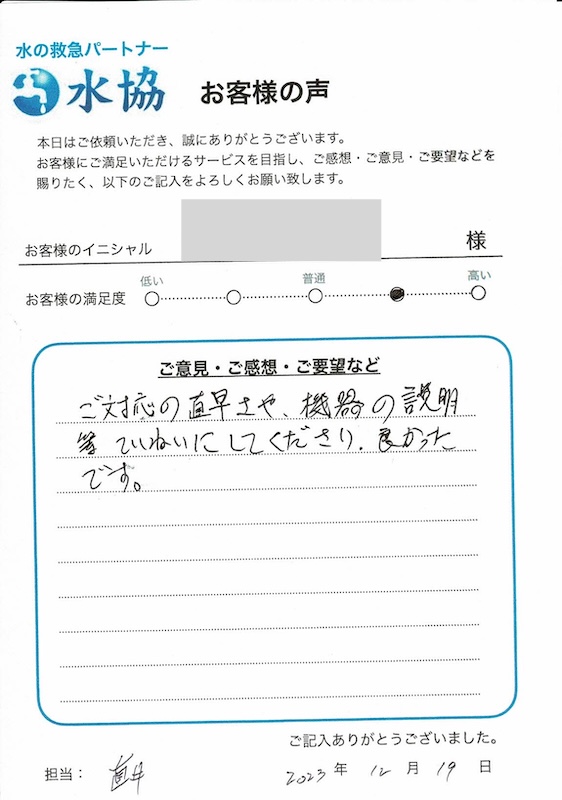 水の救急パートナー
水協 お客様の声
本日はご依頼いただき、誠にありがとうございます。
お客様にご満足いただけるサービスを目指し、ご感想・ご意見・ご要望などを
賜りたく、以下のご記入をよろしくお願い致します。
お客様のイニシャル 様
低い 普通 高い
お客様の満足度
ご意見・ご感想・ご要望など
ご対応の直早さや、機器の説明
等ていねいにしてくださり、良かった
です。
ご記入ありがとうございました。
担当: 2023年 12月 19日